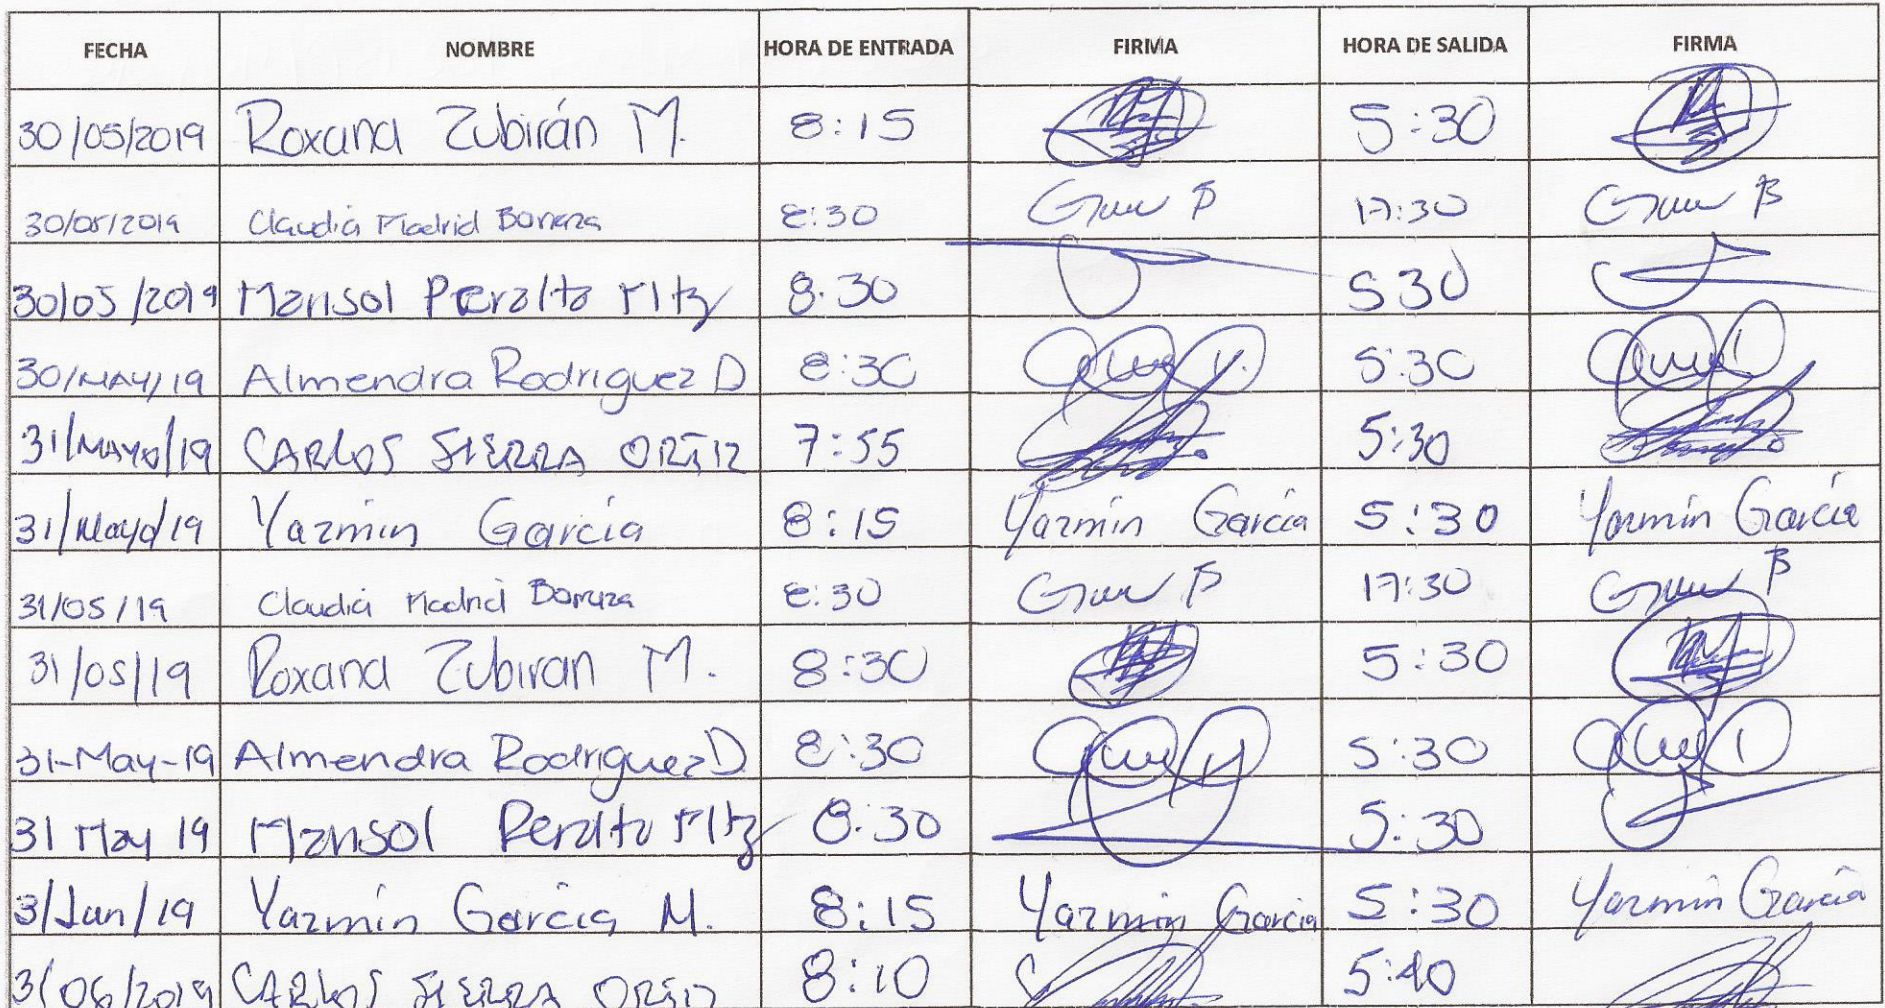 FECHA NOMBRE HORA DE ENTRADA FIRMA HORA DE SALIDA FIRMA
30/05/2019 Roxana Zubirán M. 8:15 5:30
30/05/2019 Claudia Madrid 8:30 17:30
30/05/2019 Marisol Peralta Mtz 8.30 5 30
30/MAY/19 Almendra Rodriguez D 8:30 5:30
31/MAYO/19 CARLOS SIERRA ORTIZ 7:55 5:30
31/Mayo/19 Yazmin Garcia 8:15 Yazmin Garcia 5:30 Yazmin Garcia
31/05/19 Claudia Madrid 8:30 17:30
31/05/19 Roxana Zubiran M. 8:30 5:30
31-May-19 Almendra Rodriguez D. 8:30 5:30
31 May 19 Marisol Peralta Mtz 8:30 5:30
3/Jun/19 Yazmin Garcia M. 8:15 Yazmin Garcia 5:30 Yazmin Garcia
3/06/2019 CARLOS SIERRA ORTIZ 8:10 5:40